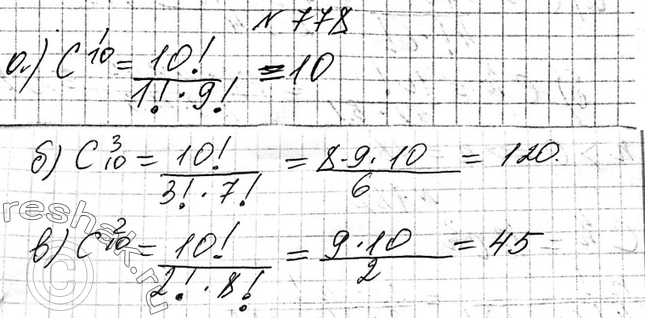 № 778
а) C¹₁₀ = 10! / (1! · 9!) = 10
б) C³₁₀ = 10! / (3! · 7!) = 8·9·10 / 6 = 120.
в) C²₁₀ = 10! / (2! · 8!) = 9·10 / 2 = 45
reshak.ru